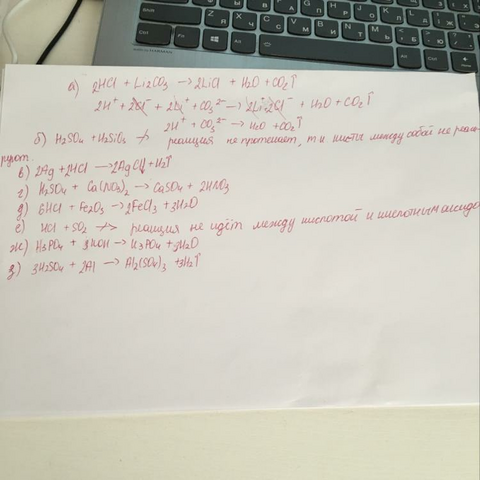 а) 2HCl + Li2CO3 → 2LiCl + H2O + CO2↑
2H⁺ + 2Cl⁻ + 2Li⁺ + CO3²⁻ → 2Li⁺ + 2Cl⁻ + H2O + CO2↑
2H⁺ + CO3²⁻ → H2O + CO2↑
б) H2SO4 + H2SiO3 ↛ реакция не протекает, т к кислоты между собой не реаги-
руют.
в) 2Ag + 2HCl → 2AgCl↓ + H2↑
г) H2SO4 + Ca(NO3)2 → CaSO4 + 2HNO3
д) 6HCl + Fe2O3 → 2FeCl3 + 3H2O
е) HCl + SO2 ↛ реакция не идёт между кислотой и кислотным оксидом
ж) H3PO4 + 3KOH → K3PO4 + 3H2O
з) 3H2SO4 + 2Al → Al2(SO4)3 + 3H2↑